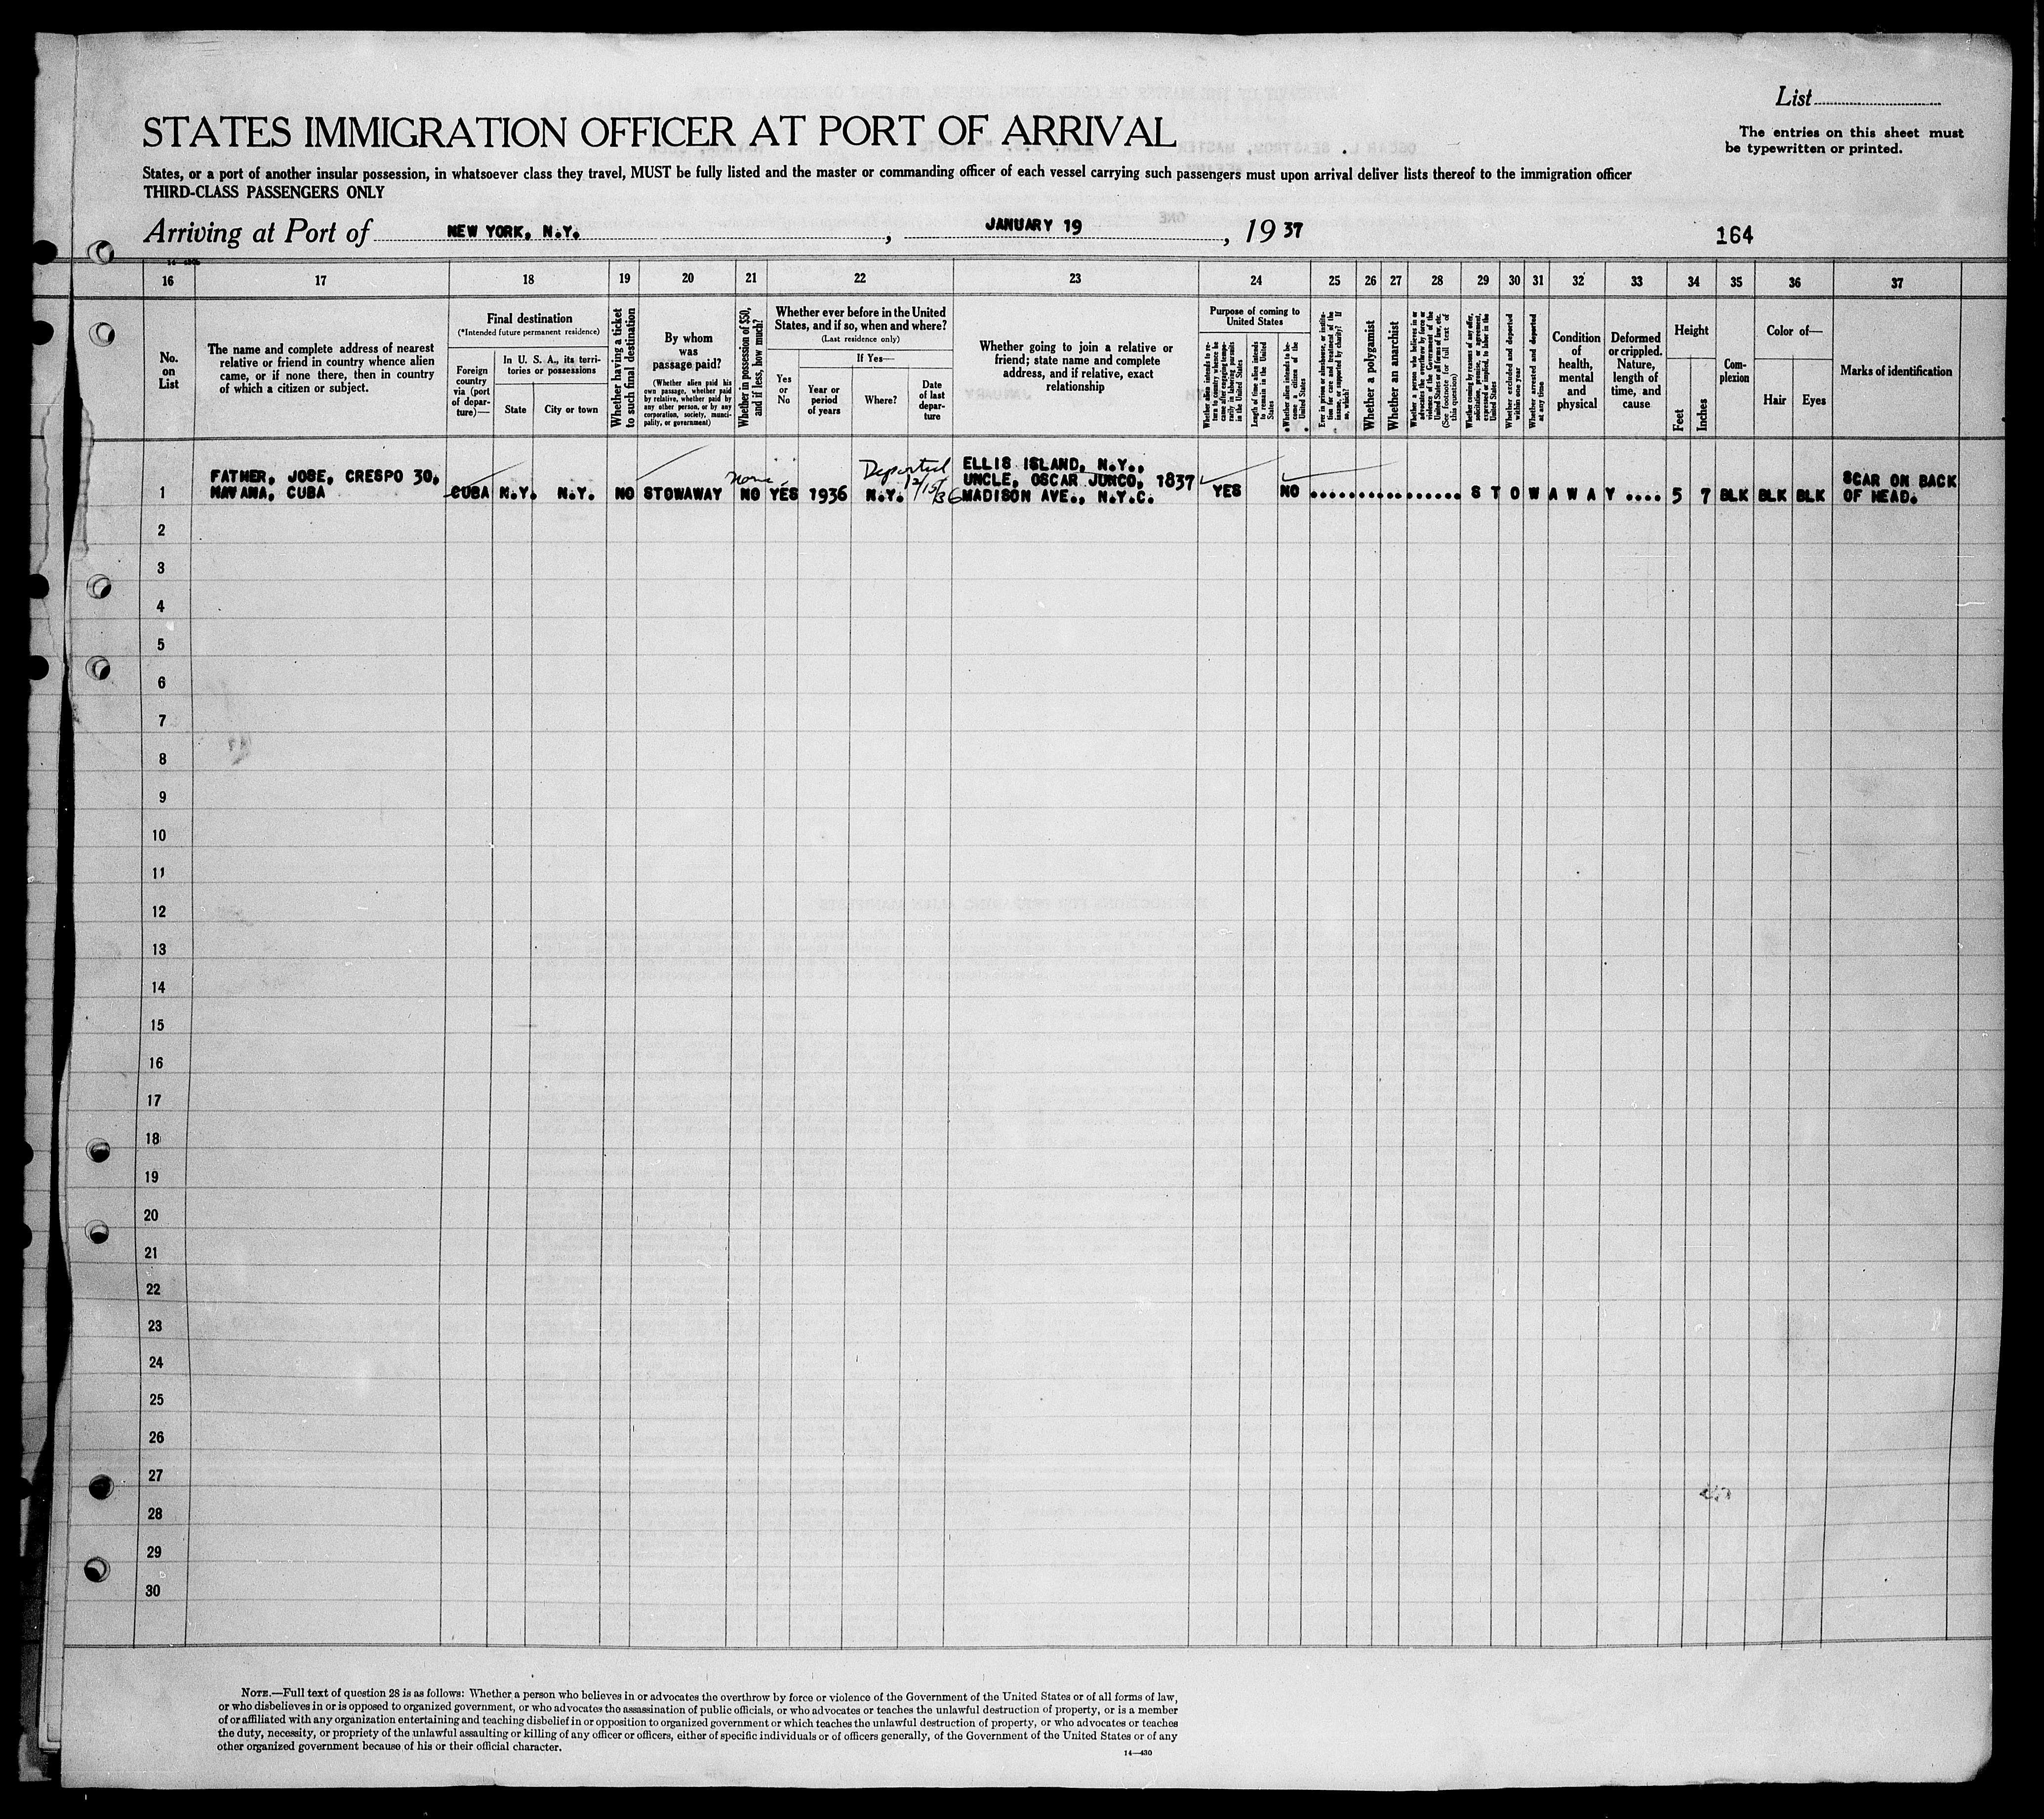 List
STATES IMMIGRATION OFFICER AT PORT OF ARRIVAL
The entries on this sheet must
be typewritten or printed.
States, or a port of another insular possession, in whatsoever class they travel, MUST be fully listed and the master or commanding officer of each vessel carrying such passengers must upon arrival deliver lists thereof to the immigration officer
THIRD-CLASS PASSENGERS ONLY
Arriving at Port of NEW YORK, N.Y. , JANUARY 19 , 19 37
164
16 17 18 19 20 21 22 23 24 25 26 27 28 29 30 31 32 33 34 35 36 37
No.
on
List
The name and complete address of nearest
relative or friend in country whence alien
came, or if none there, then in country
of which a citizen or subject.
Final destination
(*Intended future permanent residence)
Foreign
country
via (port
of depar-
ture)—
In U. S. A., its terri-
tories or possessions
State
City or town
Whether having a ticket
to such final destination
By whom
was
passage paid?
(Whether alien paid his
own passage, whether paid
by relative, whether paid by
any other person, or by any
corporation, society, munici-
pality, or government)
Whether in possession of $50,
and if less, how much?
Whether ever before in the United
States, and if so, when and where?
(Last residence only)
Yes
or
No
If Yes—
Year or
period
of years
Where?
Date
of last
depar-
ture
Whether going to join a relative or
friend; state name and complete
address, and if relative, exact
relationship
Purpose of coming to
United States
Whether alien intends to re-
turn to country whence he
came after engaging tempo-
rarily in laboring pursuits
in the United States
Length of time alien intends
to remain in the United
States
Whether alien intends to be-
come a citizen of the
United States
Ever in prison or almshouse, or institu-
tion for care and treatment of the
insane, or supported by charity? If
so, which?
Whether a polygamist
Whether an anarchist
Whether a person who believes in or
advocates the overthrow by force or
violence of the Government of the
United States or all forms of law, etc.
(See footnote for full text of
this question)
Whether coming by reason of any offer,
solicitation, promise, or agreement,
expressed or implied, to labor in the
United States
Whether excluded and deported
within one year
Whether arrested and deported
at any time
Condition
of
health,
mental
and
physical
Deformed
or crippled.
Nature,
length of
time, and
cause
Height
Feet
Inches
Com-
plexion
Color of—
Hair
Eyes
Marks of identification
FATHER, JOSE, CRESPO 30,
HAVANA, CUBA
1
CUBA N.Y. N.Y. NO STOWAWAY
none
NO YES 1936
Deported
N.Y. 12/15/36
ELLIS ISLAND, N.Y.,
UNCLE, OSCAR JUNCO, 1837
MADISON AVE., N.Y.C.
YES NO .................. S T O W A W A Y .... 5 7 BLK BLK BLK
SCAR ON BACK
OF HEAD.
2
3
4
5
6
7
8
9
10
11
12
13
14
15
16
17
18
19
20
21
22
23
24
25
26
27
28
29
30
NOTE.—Full text of question 28 is as follows: Whether a person who believes in or advocates the overthrow by force or violence of the Government of the United States or of all forms of law,
or who disbelieves in or is opposed to organized government, or who advocates the assassination of public officials, or who advocates or teaches the unlawful destruction of property, or is a member
of or affiliated with any organization entertaining and teaching disbelief in or opposition to organized government or which teaches the unlawful destruction of property, or who advocates or teaches
the duty, necessity, or propriety of the unlawful assaulting or killing of any officer or officers, either of specific individuals or of officers generally, of the Government of the United States or of any
other organized government because of his or their official character.
14—430